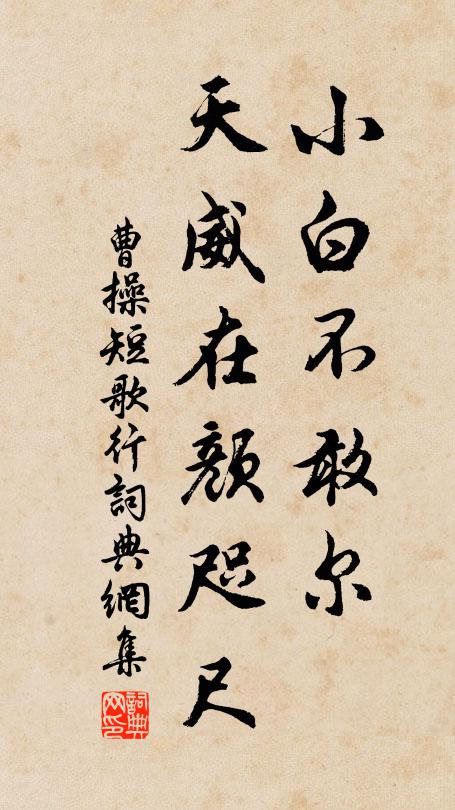 小白不敢尔
天威在颜咫尺
曹操短歌行詞典網集
詞典网印